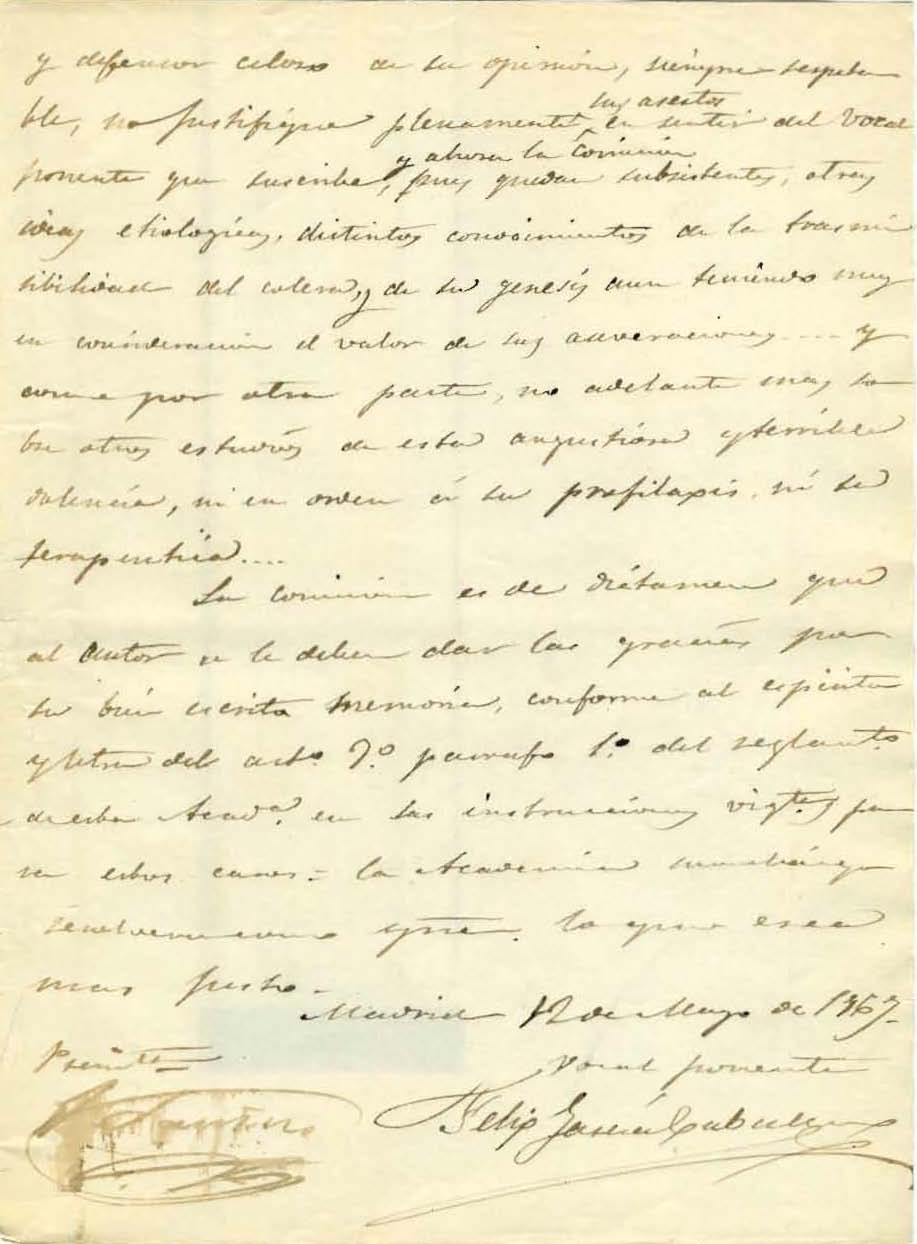 y defensor celoso de su opinión, siémpre respeta
ble, no justifique plenamente sus asertos en sentir del vocal
ponente que suscribe, y ahora la Comision pues quedan subsistentes, otras
ideas etiologicas, distintos conocimientos de la trasmi
sibilidad del colera, y de su genesis aun teniendo muy
en consideracion el valor de sus aseveraciones .... y
como por otra parte, no adelante mas so
bre otros estudiós de esta angustiosa y terrible
dolencia, ni en orden á su profilaxis, ni su
terapeutica....
La comision es de dictamen que
al autor se le deben dar las gracias por
su bién escrita memoria, conforme al espiritu
y letra del arto. 7.º parrafo 1.º del reglamto.
de esta Acada. en las instrucciones vigtes. pa
ra estos casos = la Academia
resolvera como lo que crea
mas justo.
Madrid 12 de Mayo de 1867.
Presidte Vocal ponente
Felix García Caballero